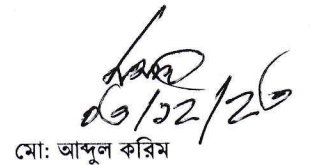 ০৩/১২/২৩
মো: আব্দুল করিম